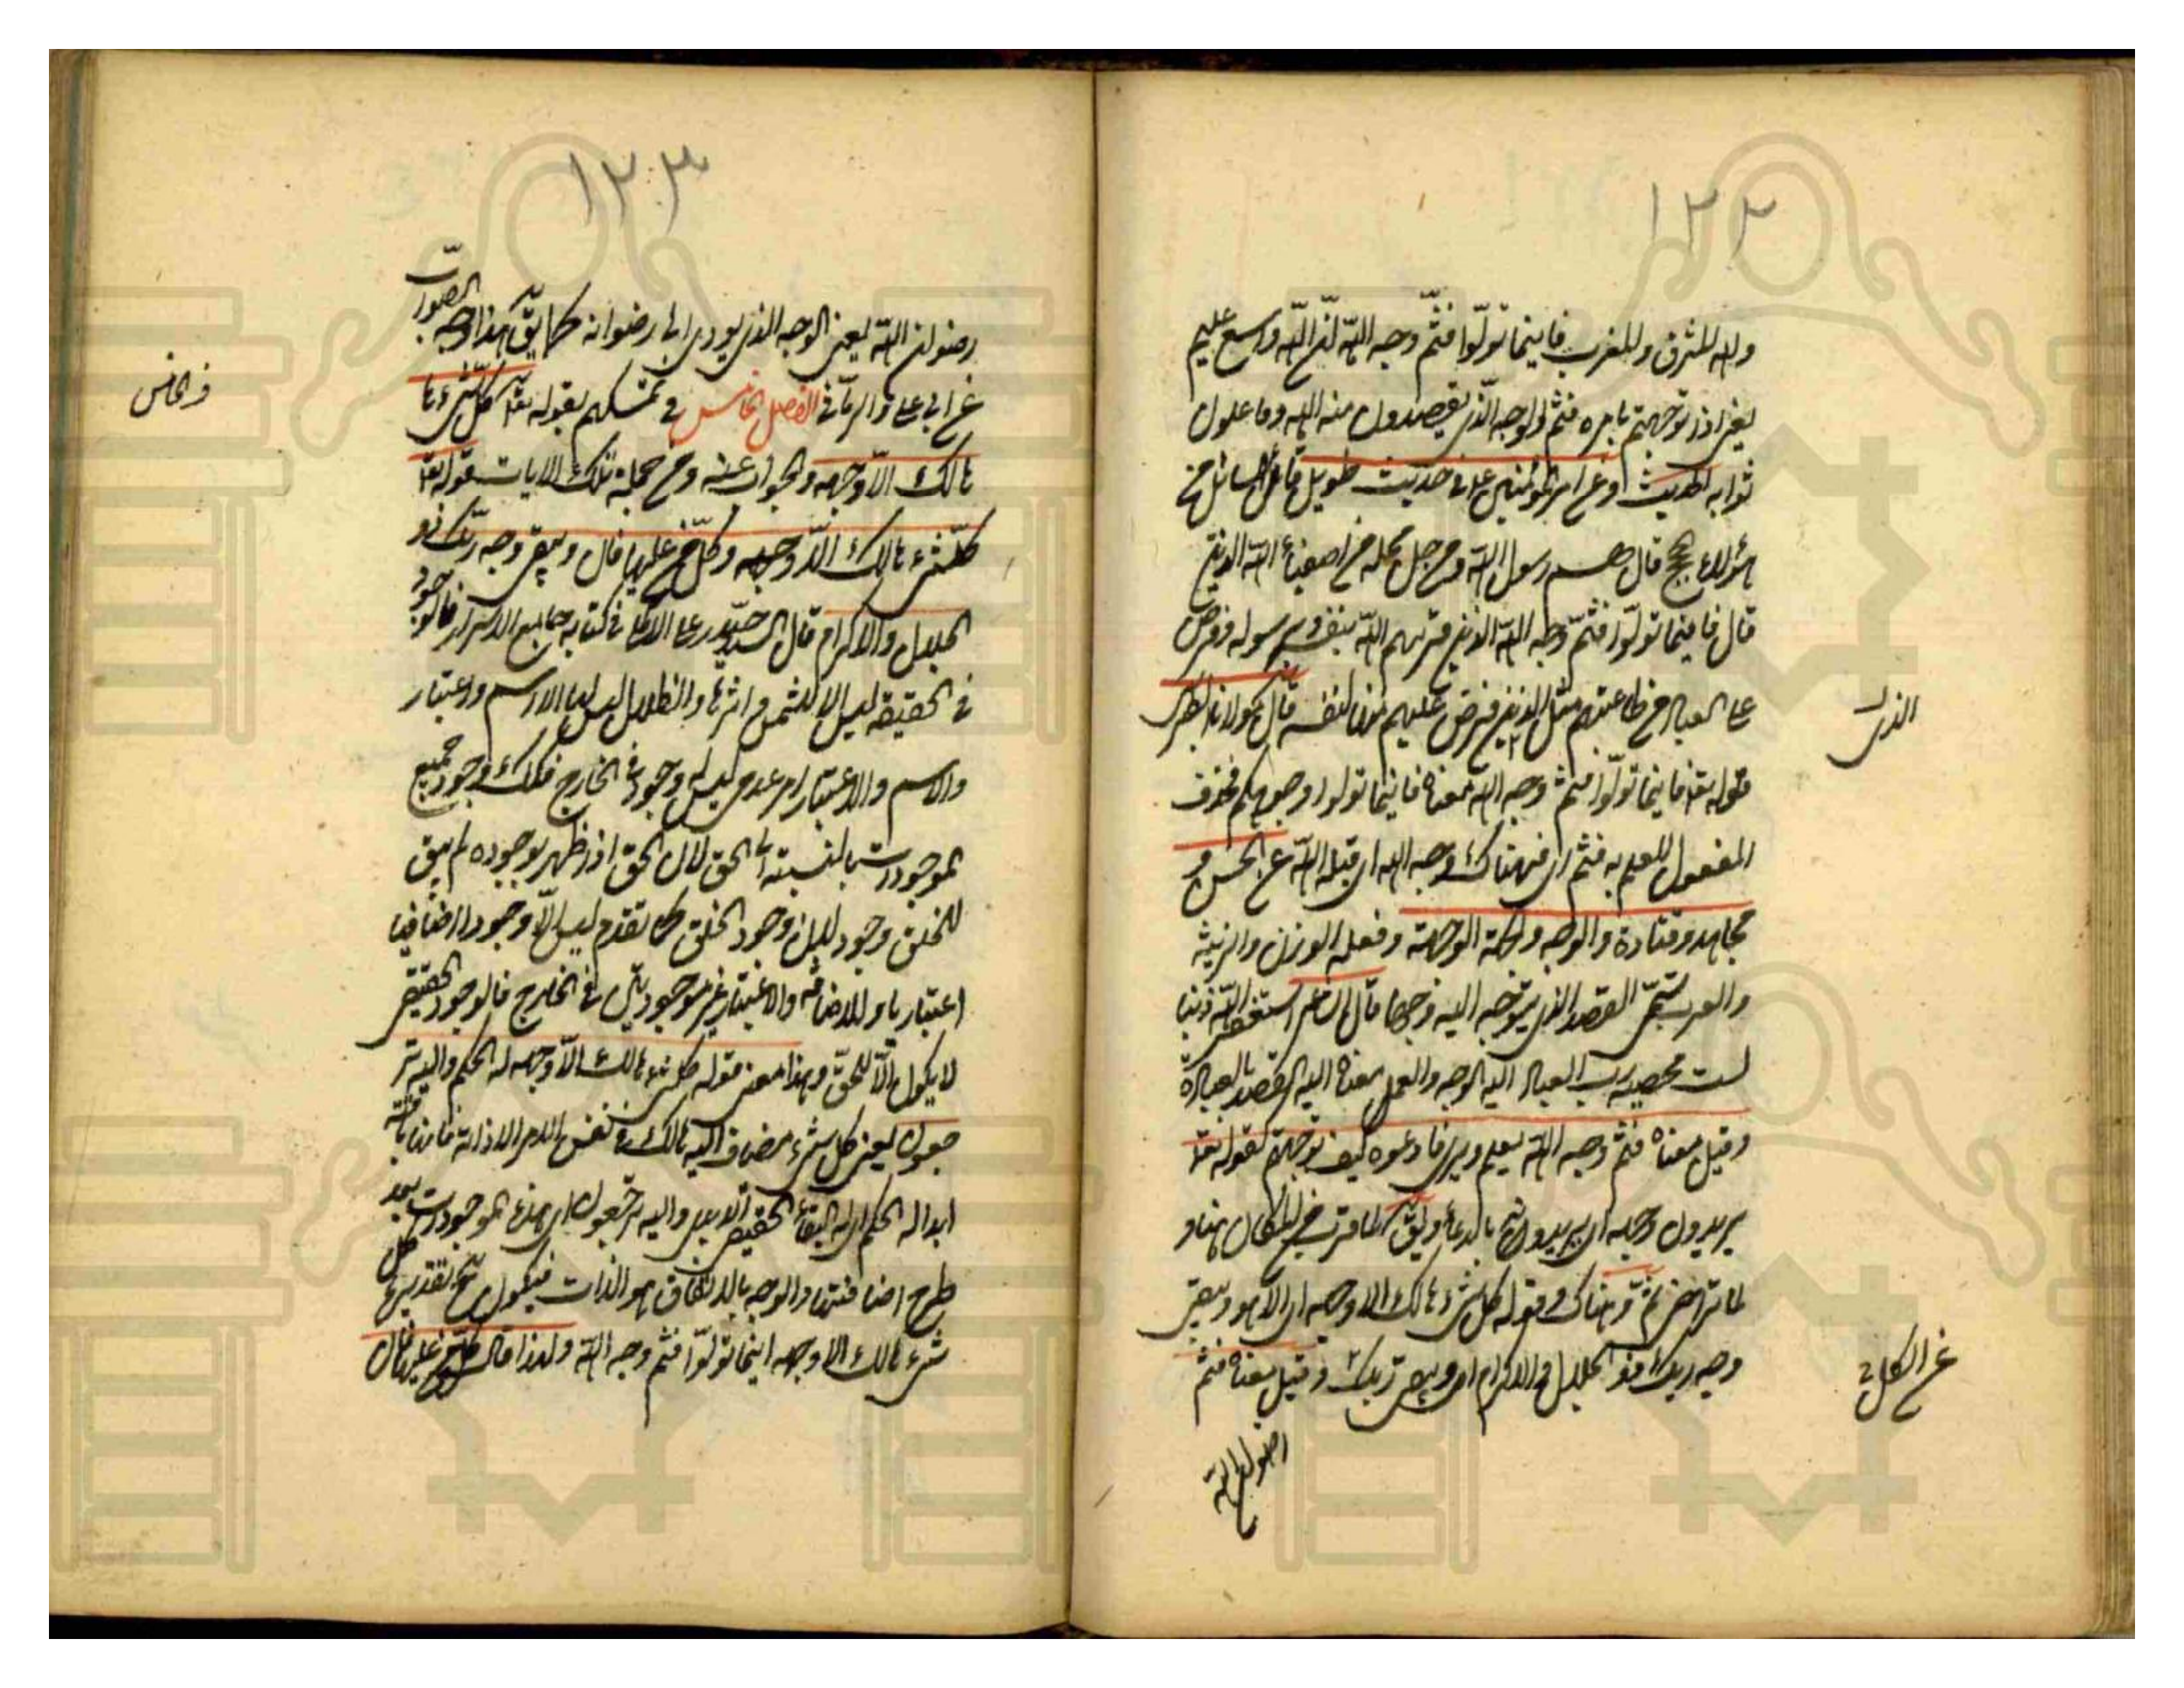 ١٢٢
ولله المشرق والمغرب فاينما تولّوا فثمّ وجه الله انّ الله واسع عليم
يعنى اذا توجهتم بامره فثم الوجه الّذى تقصدون منه الله وتاملون
ثوابه الحديث وعن امير المؤمنين ع فى حديث طويل قال السائل من
هؤلاء الحجج قال هم رسول الله ومن حل محله من اصفياء الله الذين
قال فاينما تولّوا فثمّ وجه الله الذين قرنهم الله بنفسه وبرسوله وفرض
على العباد من طاعتهم مثل الذى فرض عليهم منها لنفسه قال مولانا الطبرسى
الذى
قوله تعا فاينما تولّوا فثم وجه الله معناه فاينما تولوا وجوهكم فحذف
المفعول للعلم به فثم اى فهناك وجه الله اى قبلة الله عن الحسن و
مجاهد وقتادة والوجه والجهة والوجهة وفعله الوزن والزنة
والعرب تسمّى القصد الذى يتوجه اليه وجها قال الشاعر استغفر الله ذنبا
لست محصيه رب العباد اليه الوجه والعمل معناه اليه القصد بالعبادة
وقيل معناه فثم وجه الله يعلم ويرى فادعوه كيف توجهتم كقوله تعا
يريدون وجهه اى يريدونه بالدعاء ويق لما قرب من المكان هنا و
لما تراخى ثمّ وهناك وقوله كل شىء هالك الا وجهه اى الا هو ويبقى
وجه ربك ذو الجلال والاكرام اى ويبقى ربك وقيل معناه فثم
عن الكلبى
رضوان الله
١٢٣
رضوان الله يعنى الوجه الذى يؤدى الى رضوانه كما يق هذا وجه الصواب
عن ابى على والرمّانى الفصل الخامس فى تمسكهم بقوله تعا كل شىء
فى الخامس
هالك الا وجهه والجواب عنه ومن جملة تلك الايات قوله تعا
كلّ شىء هالك الا وجهه وكلّ من عليها فان ويبقى وجه ربّك ذو
الجلال والاكرام قال السيد حيدر على الاملى فى كتابه جامع الاسرار فالوجود
فى الحقيقة ليس الا للشمس واثرها والظلال ليس لها الا اسم واعتبار
والاسم والاعتبار امر عدمى ليس له وجود فى الخارج فكذلك وجود جميع
الموجودات بالنسبة الى الحق لان الحق اذا ظهر بوجوده لم يبق
للخلق وجود لان وجود الخلق كما تقدم ليس الّا وجودا اضافيا
اعتباريا والاضافة والاعتبار غير موجودين فى الخارج فالوجود الحقيقى
لا يكون الّا للحقّ وهذا معنى قوله كل شىء هالك الّا وجهه له الحكم واليه تر
جعون يعنى كل شىء مضاف اليه هالك فى نفس الامر الا ذاته فانها باقية
ابدا له الحكم اى له البقاء الحقيقى الابدى واليه ترجعون اى هذه الموجودات بعد
طرح اضافتها والوجه بالاتفاق هو الذات فيكون ح تقديره كل
شىء هالك الا وجهه اينما تولّوا فثم وجه الله ولهذا قال كل من عليها فان